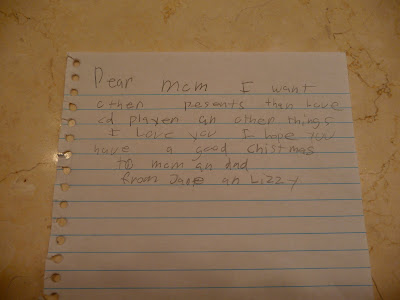 Dear mom I want
other pesents than love
cd player an other things
I love you I hope you
have a good Chistmas
to mom an dad
from Jane an Lizzy